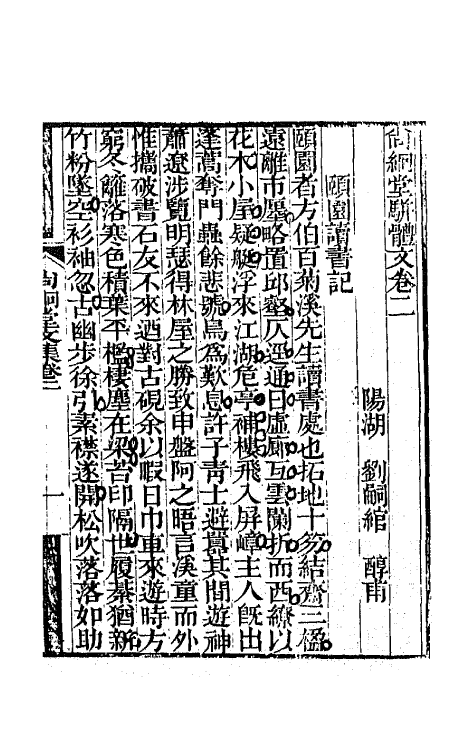 尙絅堂駢體文卷二
陽湖 劉嗣綰 醇甫
頤園讀書記
頤園者方伯百菊溪先生讀書處也拓地十笏結齋三楹
遠離市壥略置邱壑仄逕通曰虛廊互雲闌折而西繚以
花木小屋疑艇浮來江湖危亭補樓飛入屏嶂主人旣出
蓬蒿奪門蟲餘悲號鳥爲歎息許子青士避囂其間遊神
肅遼涉覽明瑟得林屋之勝致申盤阿之晤言溪童而外
惟攜破書石友不來迺對古硯余以暇日巾車來遊時方
窮冬籬落寒色積葉平檻棲塵在梁苔印隔世履綦猶新
竹粉墜空衫袖忽古幽步徐引素襟遂開松吹落落如助
尙絅堂文集卷二
一